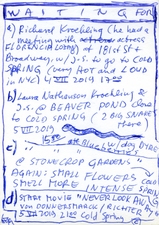 WAITING FOR
a) Richard Kroehling (he had a
meeting with actress
FLORENCIA LOZANO) at 181 St &
Broadway, w/ J.S. to go to COLD
SPRING (very HOT and LOUD
in NYC) 4 VII 2019 17
b) Laura Nathanson Kroehling &
J.S. @ BEAVER POND close
to COLD SPRING (2 BIG SNAKES)
5 VII 2019
c) w/ dog
@ STONECROP GARDENS
AGAIN: SMALL FLOWERS
SMELL MORE INTENSE
d) START MOVIE "NEVER LOOK AWAY"
VON DONNERSMARCK / RICHTER
5 VII 2019 21 Cold Spring